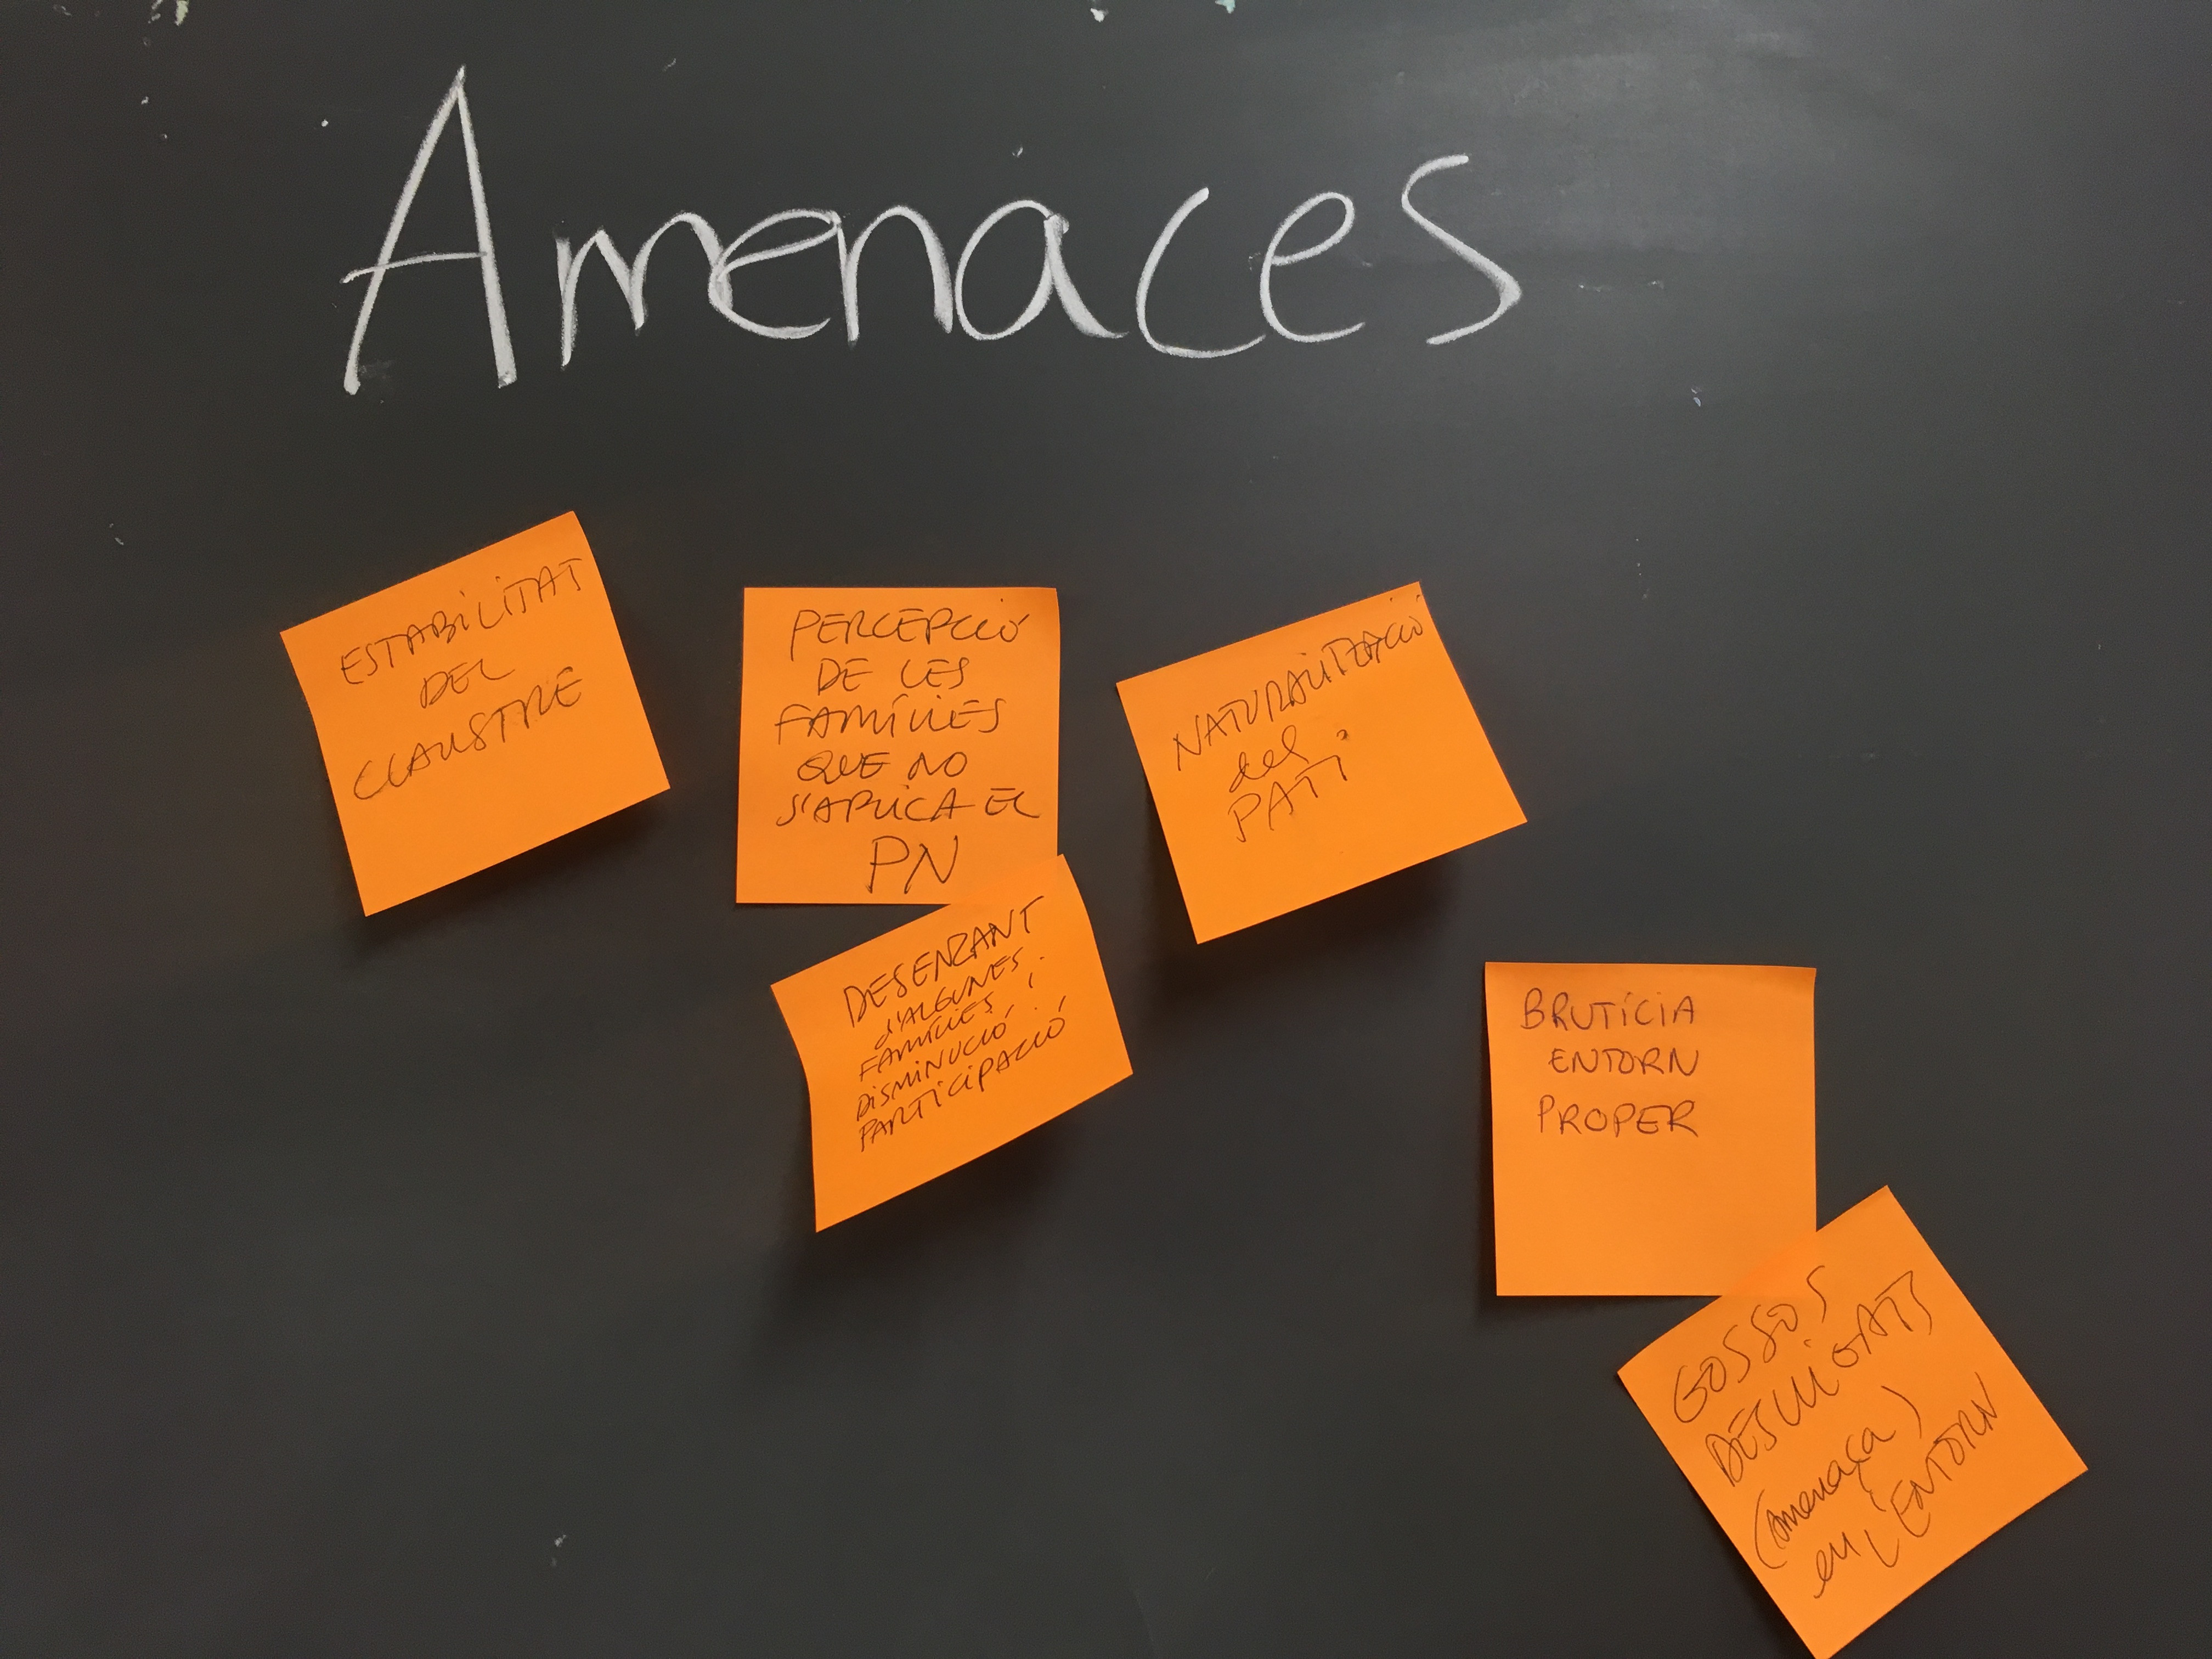 Amenaces
ESTABILITAT
DEL
CLAUSTRE
PERCEPCIÓ
DE LES
FAMÍLIES
QUE NO
S'APLICA EL
PN
NATURALITZACIÓ
del
PATI
DESENZANT
D'ALGUNES
FAMÍLIES i
DISMINUCIÓ
PARTICIPACIÓ
BRUTÍCIA
ENTORN
PROPER
GOSSOS
DESLLIGATS
(amenaça)
en L'ENTORN